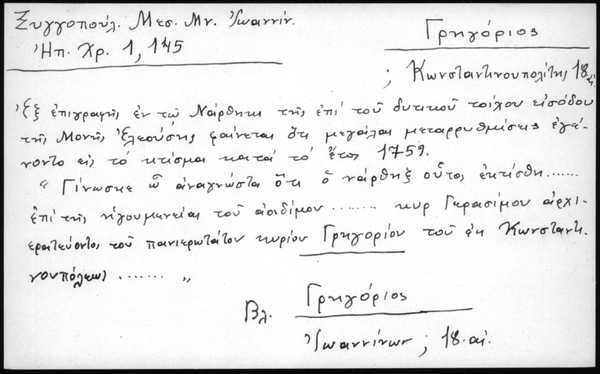 Ξυγγοπούλ. Μεσ. Μν. Ἰωαννίν.
Ἠπ. Χρ. 1, 145
Γρηγόριος
; Κωνσταντινουπολίτης 18 αἰ.
Ἐξ ἐπιγραφῆς ἐν τῷ Νάρθηκι τῆς ἐπί τοῦ δυτικοῦ τοίχου εἰσόδου
τῆς Μονῆς Ἐλεούσης φαίνεται ὅτι μεγάλαι μεταρρυθμίσεις ἐγέ-
νοντο εἰς τό κτίσμα κατά τό ἔτος 1759.
" Γίνωσκε ὦ ἀναγνῶστα ὅτι ὁ νάρθηξ οὗτος ἐκτίσθη.......
ἐπί τῆς ἡγουμενείας τοῦ ἀοιδίμου ........ κυρ Γερασίμου ἀρχι-
ερατεύοντος τοῦ πανιερωτάτου κυρίου Γρηγορίου τοῦ ἐκ Κωνσταντι-
νουπόλεως ....... "
Βλ. Γρηγόριος
Ἰωαννίνων ; 18. αἰ.